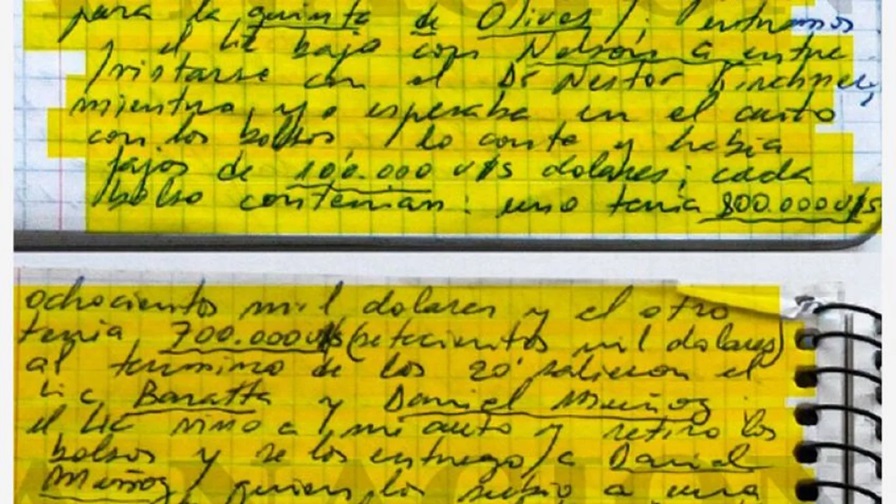 para la quinta de Olivos /: entramos
y el Lic bajo con Nelson a entre
/vistarse con el Dr Nestor Kirchner,
mientras yo esperaba en el auto
con los bolsos, / lo conte y habia
fajos de 100.000 u$s dolares; cada
bolso contenian: uno tenia 800.000 u$s
ochocientos mil dolares y el otro
tenia 700.000 u$s (setecientos mil dolares)
al termino de los 20' salieron el
Lic Baratta y Daniel Muñoz.
el Lic vino a / mi auto y retiro los
bolsos y se los entrego / a Daniel
Muñoz / quien los subio a una